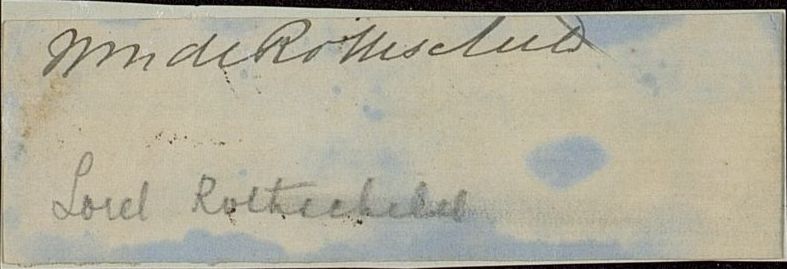 de Rothschild
Lord Rothschild